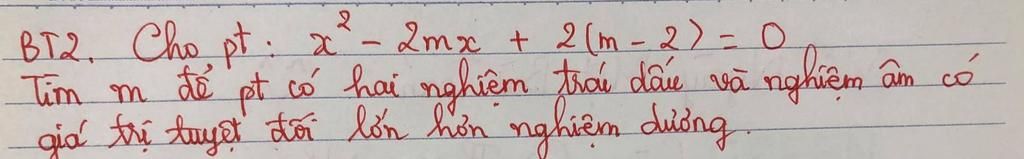 BT2. Cho pt: x² - 2mx + 2(m - 2) = 0
Tìm m để pt có hai nghiệm trái dấu và nghiệm âm có
giá trị tuyệt đối lớn hơn nghiệm dương.